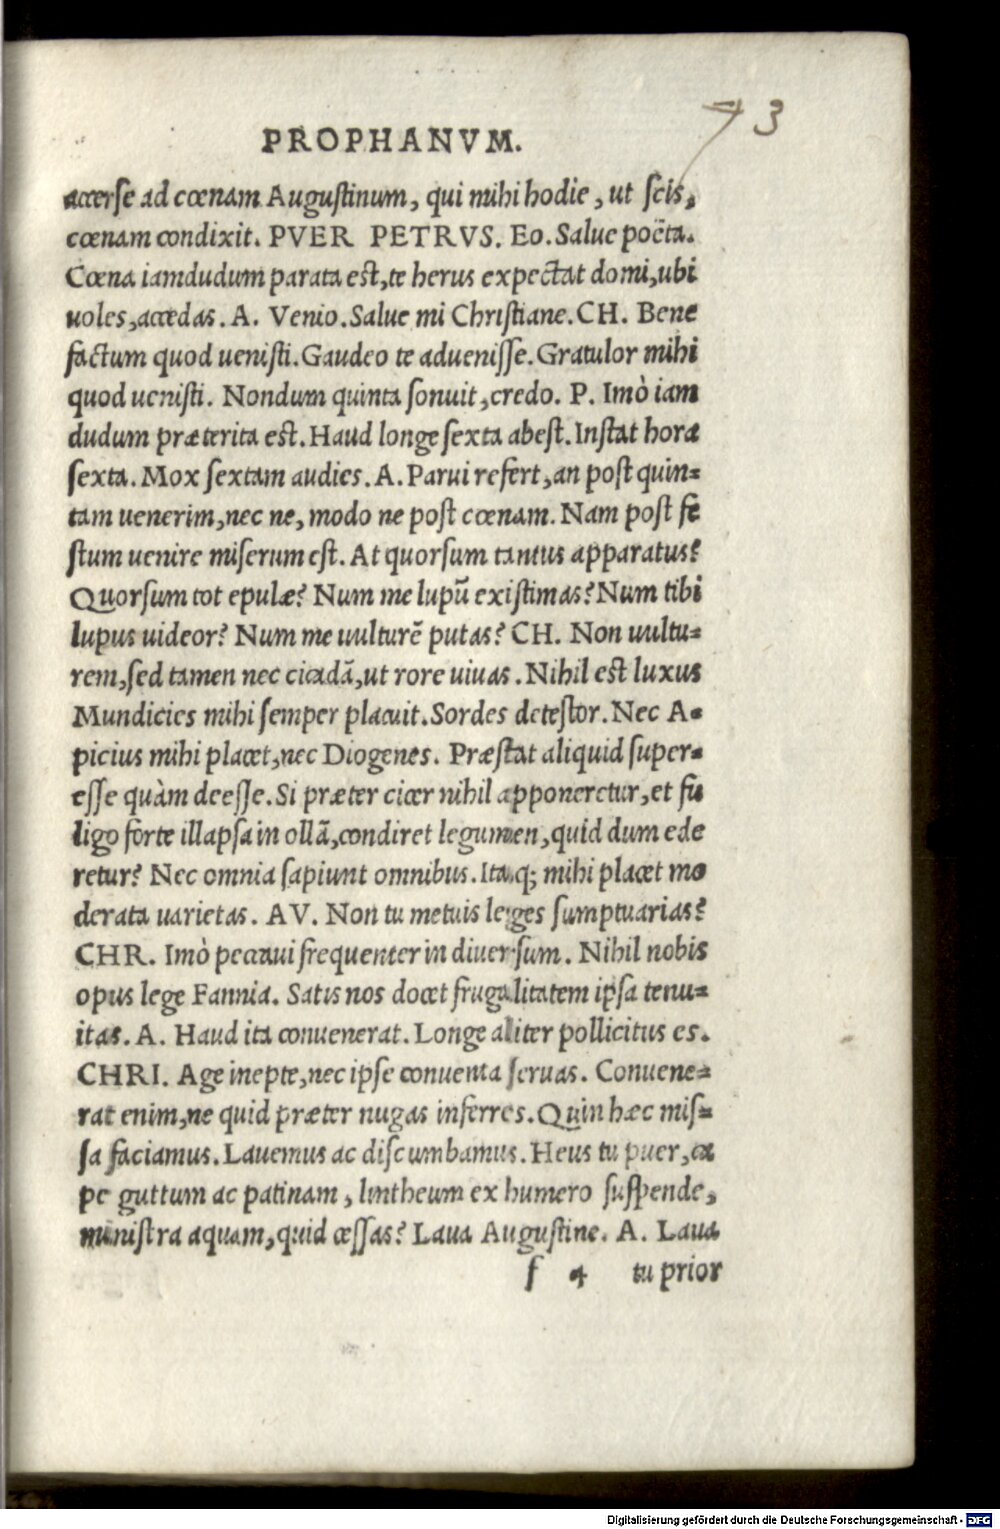 73
PROPHANVM.
accerse ad cœnam Augustinum, qui mihi hodie, ut scis,
cœnam condixit. PVER PETRVS. Eo. Salue poëta.
Cœna iamdudum parata est, te herus expectat domi, ubi
uoles, accedas. A. Venio. Salue mi Christiane. CH. Bene
factum quod uenisti. Gaudeo te aduenisse. Gratulor mihi
quod uenisti. Nondum quinta sonuit, credo. P. Imò iam
dudum præterita est. Haud longe sexta abest. Instat hora
sexta. Mox sextam audies. A. Parui refert, an post quin-
tam uenerim, nec ne, modo ne post cœnam. Nam post fe
stum uenire miserum est. At quorsum tantus apparatus?
Quorsum tot epulæ? Num me lupũ existimas? Num tibi
lupus uideor? Num me uulturẽ putas? CH. Non uultu-
rem, sed tamen nec cicadã, ut rore uiuas. Nihil est luxus
Mundicies mihi semper placuit. Sordes detestor. Nec A-
picius mihi placet, nec Diogenes. Præstat aliquid super-
esse quàm deesse. Si præter cicer nihil apponeretur, et fu
ligo forte illapsa in ollã, condiret legumen, quid dum ede
retur? Nec omnia sapiunt omnibus. Itaq; mihi placet mo
derata uarietas. AV. Non tu metuis leges sumptuarias?
CHR. Imò peccaui frequenter in diuersum. Nihil nobis
opus lege Fannia. Satis nos docet frugalitatem ipsa tenu-
itas. A. Haud ita conuenerat. Longe aliter pollicitus es.
CHRI. Age inepte, nec ipse conuenta seruas. Conuene-
rat enim, ne quid præter nugas inferres. Quin hæc mis-
sa faciamus. Lauemus ac discumbamus. Heus tu puer, ca
pe guttum ac patinam, lintheum ex humero suspende,
ministra aquam, quid cessas? Laua Augustine. A. Laua
f 4 tu prior
Digitalisierung gefördert durch die Deutsche Forschungsgemeinschaft - DFG